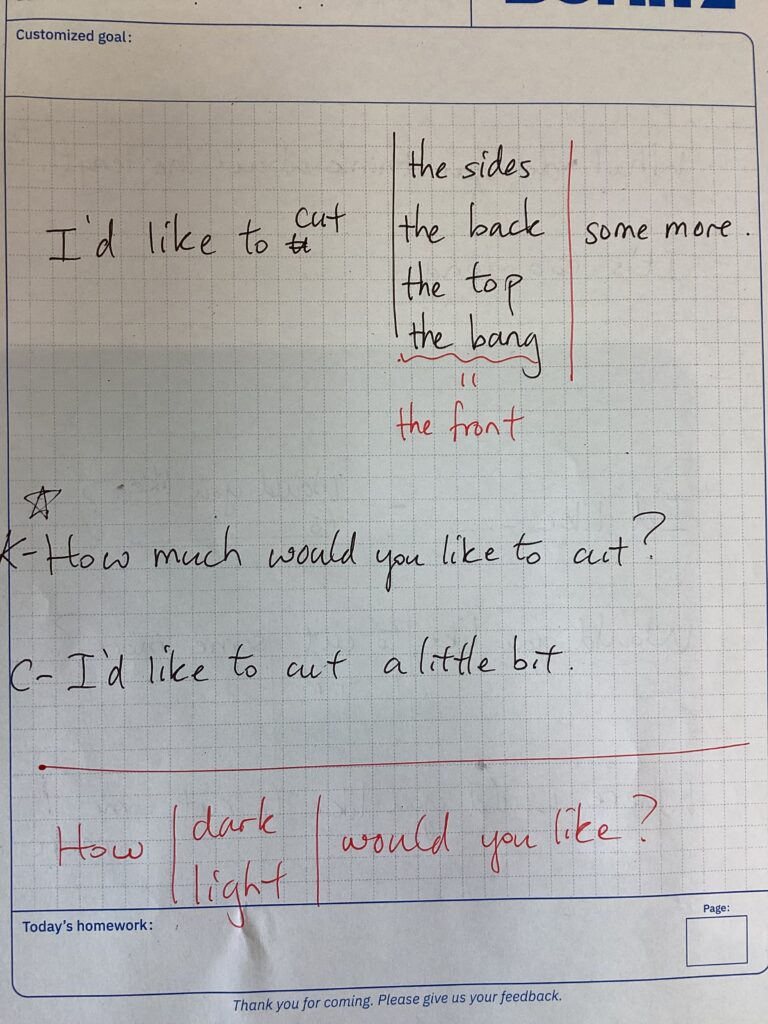 Customized goal:
the sides
I'd like to cut the back some more.
the top
the bang
=
the front
☆
K- How much would you like to cut?
C- I'd like to cut a little bit.
How dark would you like?
light
Today's homework:
Page:
Thank you for coming. Please give us your feedback.